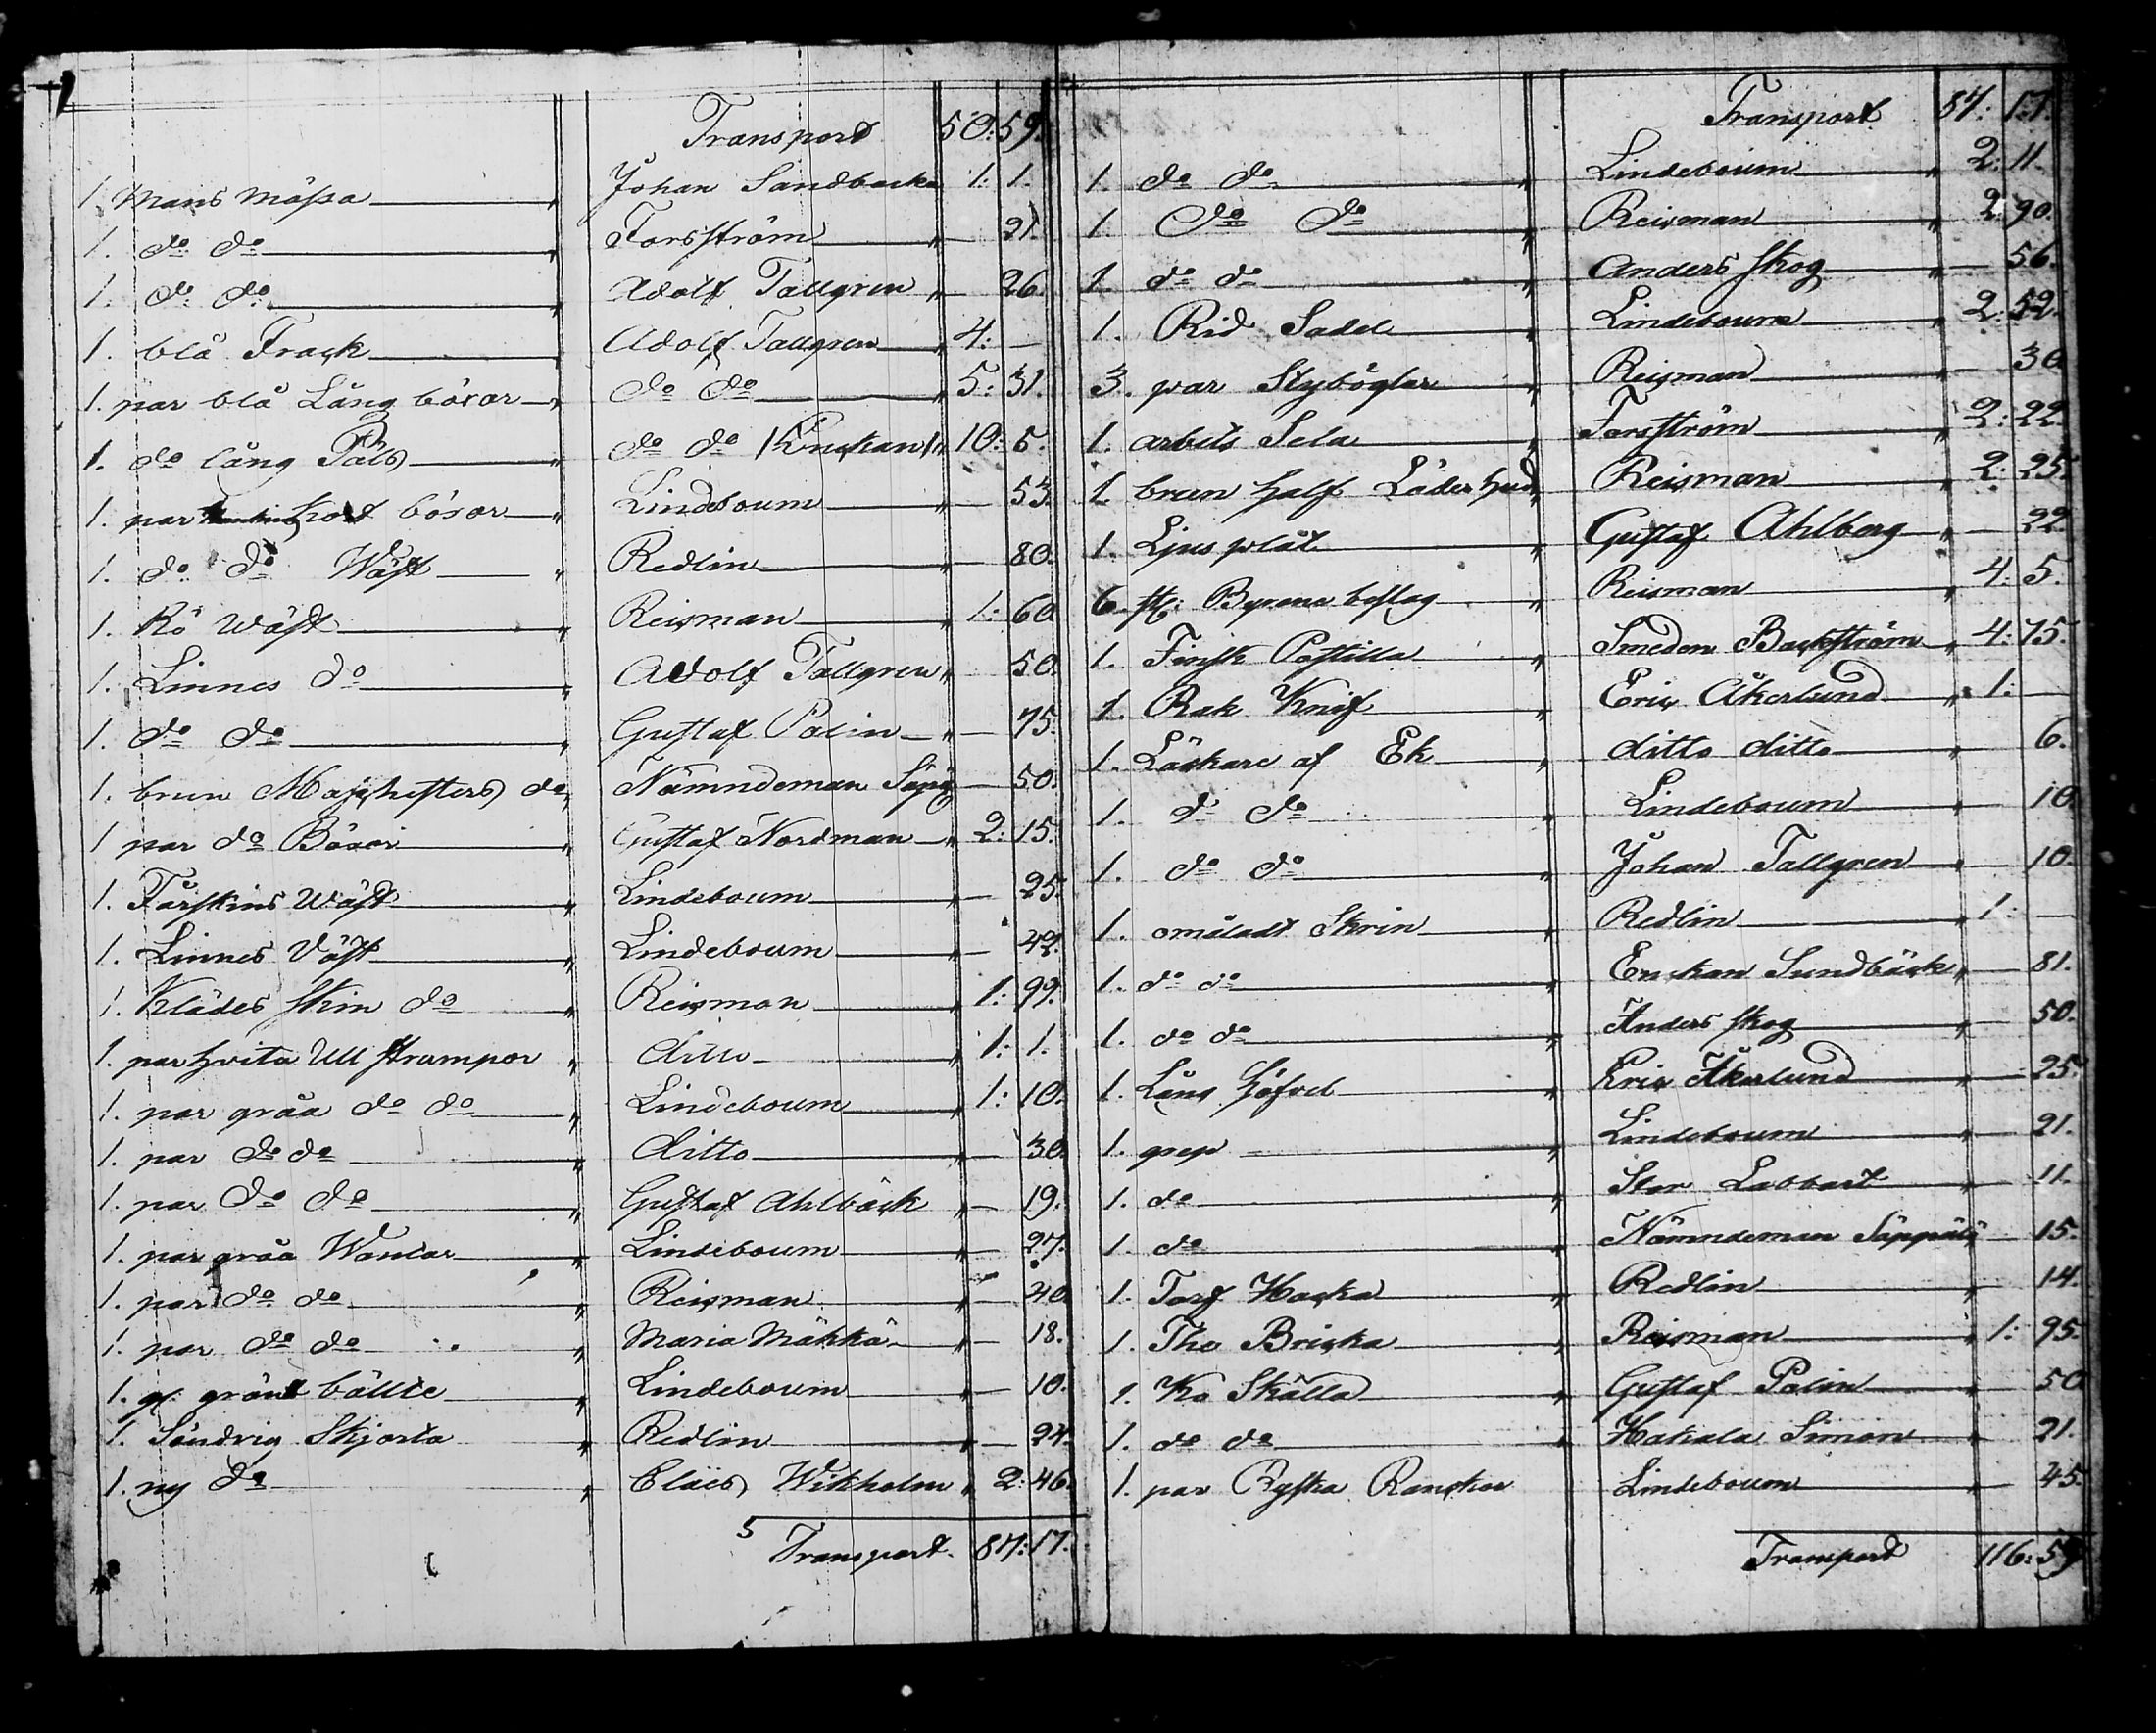 Transport 50: 59.
1 Mans mössa " Johan Sandbacka 1: 1.
1. do do " Forsström " — 21.
1. do do " Adolf Tallgren " — 26.
1. blå Frack " Adolf Tallgren " 4: —
1. par blå Lång böxor " do do " 5: 31.
1. do lång Päls do do /Enckan/ " 10: 5.
1. par kort böxor " Lindeboum " — 53.
1. do do Wäst " Redlin " — 80.
1. Rö Wäst " Reisman " 1: 60
1. Linnes do " Adolf Tallgren " 50.
1. do do " Gustaf Palin " — 75.
1. brun do " Nämndeman — 50.
1 par do Böxor " Gustaf Nordman " 2: 15.
1. Fårskins Wäst " Lindeboum " — 25.
1. Linnes Väst " Lindeboum " — 42.
1. Klädes skin do " Reisman " 1: 99.
1. par hvita Ull strumpor " ditto " 1: 1.
1. par gråa do do " Lindeboum " 1: 10.
1. par do do " ditto " — 30.
1. par do do " Gustaf Ahlbäck " — 19.
1. par gråa Wantar " Lindeboum " — 27.
1. par do do " Reisman " — 40.
1. par do do " Maria Mäkkä " — 18.
1. gl. grönt bällte " Lindeboum " — 10.
1. Söndrig Skjorta " Redlin " — 24.
1. ny do " Claës Wikholm " 2: 46.
5 Transport. 87: 17.
Transport 87: 17.
1. do do " Lindeboum " 2: 11.
1. do do " Reisman " 2: 90.
1. do do " Anders Skog " — 56.
1. Rid Sadel " Lindeboum " 2: 52.
3. par Styböglar " Reisman " — 30
1. arbets Sela " Forsström " 2: 22.
1. brun half Läder hud " Reisman " 2: 25.
1. Ljus plåt " Gustaf Ahlberg " — 22.
6 st: Byrona beslag " Reisman " 4: 5.
1. Finsk Postilla " Smeden Backström " 4: 75.
1. Rak Knif " Eric Åkerlund " 1: —
1. Läskare af Ek " ditto ditto " 6.
1. do do " Lindeboum " — 10.
1. do do " Johan Tallgren " — 10.
1. omåladt Skrin " Redlin " 1: —
1. do do " Enckan Sundbäck " — 81.
1. do do " Anders Skog " — 50.
1. Lång Höfvel " Eric Åkerlund " — 25.
1. grep " Lindeboum " — 21.
1. do " Stor Labbart " — 11.
1. do " Nämndeman Säppälä — 15.
1. Torf Hacka " Redlin " — 14.
1. The Bricka " Reisman " 1: 95.
1. Ko Skälla " Gustaf Palin " — 50
1. do do " Hakala Simon " — 21.
1. par Ryska Lindeboum " — 45.
Transport 116: 59